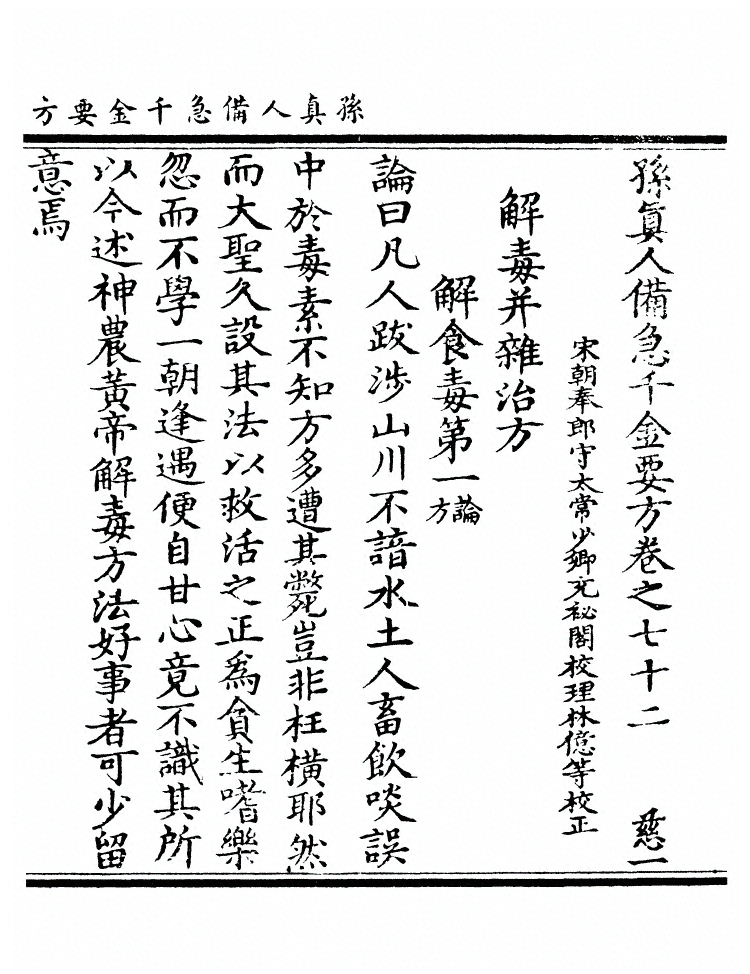 孫真人備急千金要方
孫真人備急千金要方卷之七十二 慈一
宋朝奉郎守太常少卿充祕閣校理林億等校正
解毒并雜治方
解食毒第一論方
論曰凡人跋涉山川不諳水土人畜飲啖誤
中於毒素不知方多遭其斃豈非枉橫耶然
而大聖久設其法以救活之正為貪生嗜樂
忽而不學一朝逢遇便自甘心竟不識其所
以今述神農黃帝解毒方法好事者可少留
意焉